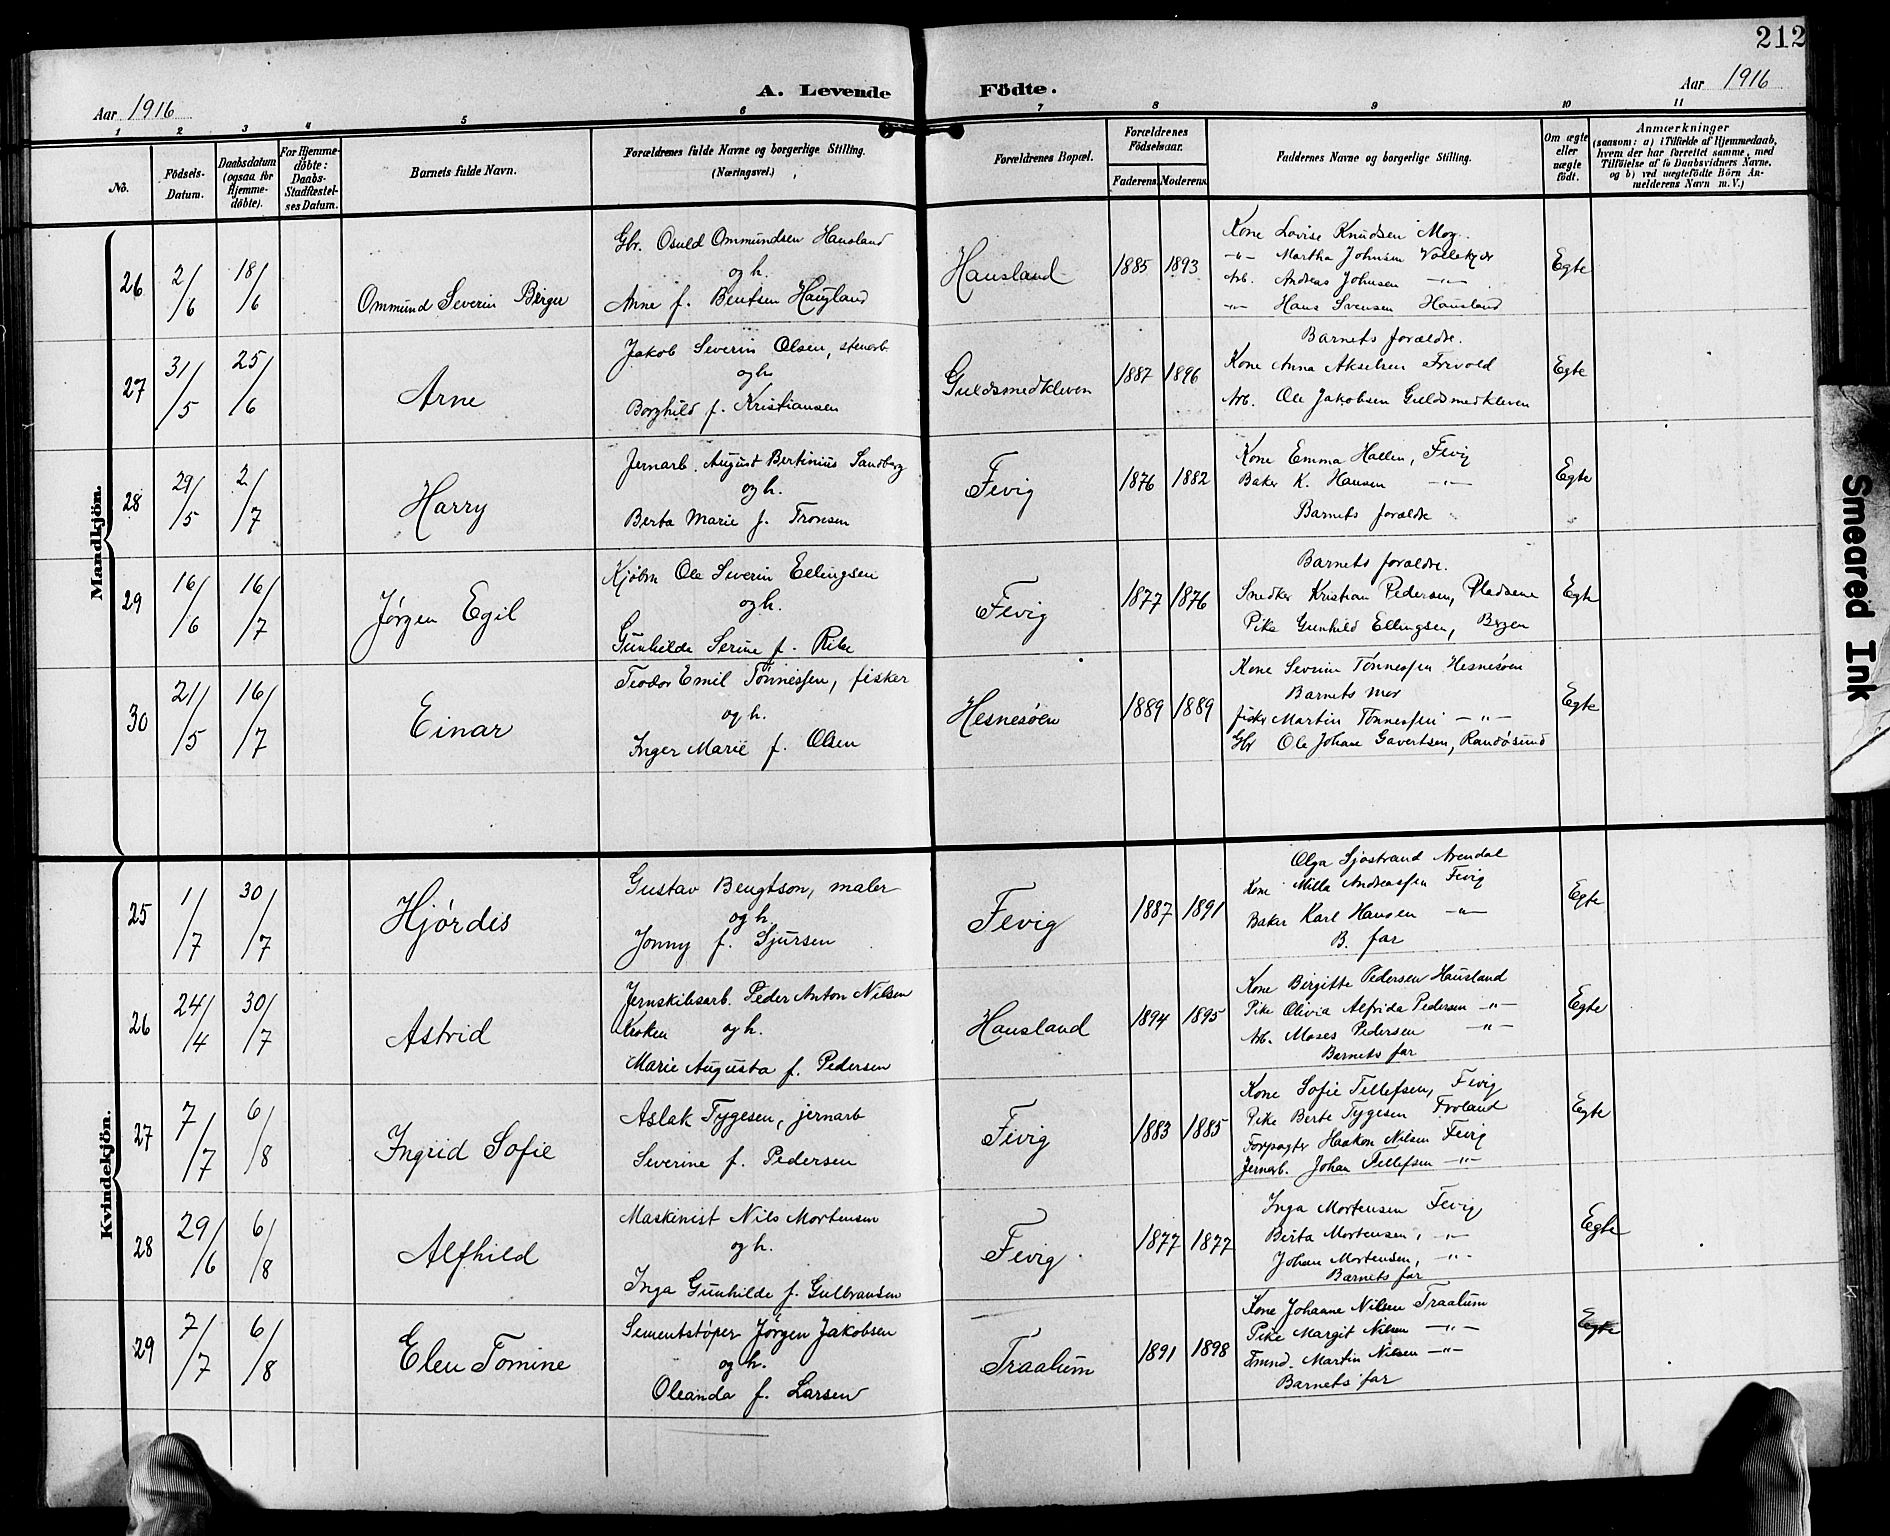 212
Aar 1916
A. Levende Födte.
Aar 1916
1 2 3 4 5 6 7 8 9 10 11
No.
Födsels-
Datum.
Daabsdatum
(ogsaa for
Hjemme-
döbte).
For Hjemme-
döbte:
Daabs-
Stadfæstel-
ses Datum.
Barnets fulde Navn.
Forældrenes fulde Navne og borgerlige Stilling.
(Næringsvei.)
Forældrenes Bopæl.
Forældrenes
Födselsaar.
Faderens. Moderens.
Faddernes Navne og borgerlige Stilling.
Om ægte
eller
uægte
født.
Anmærkninger
(saasom: a) i Tilfælde af Hjemmedaab,
hvem der har forrettet samme, med
Tilföielse af to Daabsvidners Navne.
og b) ved uægtefödte Börn An-
melderens Navn m. V.)
Mandkjön.
26
2/6
18/6
Ommund Severin Birger
Gbr. Osuld Ommundsen Hausland
og h.
Anne f. Bentsen Haugland
Hausland
1885 1893
Kone Lovise Knudsen Moy
-"- Martha Johnsen
Arb. Andreas Johnsen -"-
-"- Hans Svensen Hausland
Egte
27
31/5
25/6
Arne
Jakob Severin Olsen, stenarb
og h
Borghild f. Kristiansen
Guldsmedkleven
1887 1896
Barnets forældre.
Kone Anna Akselsen Frivold
Arb. Ole Jakobsen Guldsmedkleven
Egte
28
29/5
2/7
Harry
Jernarb. August Bertinius Sandberg
og h.
Berta Marie f. Tronsen
Fevig
1876 1882
Kone Emma Hallen, Fevig
Baker K. Hansen -"-
Barnets forældre
Egte
29
16/6
16/7
Jørgen Egil
Kjøbm Ole Severin Ellingsen
og h.
Gunhilde Serine f. Ribe
Fevig
1877 1876
Barnets forældre.
Snedker Kristian Pedersen, Pladsene
Pike Gunhild Ellingsen, Bergen
Egte
30
21/5
16/7
Einar
Teodor Emil Tönnessen, fisker
og h.
Inger Marie f. Olsen
Hesnesöen
1889 1889
Kone Severine Tönnessen Hesnesöen
Barnets mor
fisker Martin Tönnessen -"-
Gbr Ole Johan Gavertsen, Randøsund
Egte
Kvindekjön.
25
1/7
30/7
Hjørdis
Gustav Bengtson, maler
og h
Jonny f. Sjursen
Fevig
1887 1891
Olga Sjøstrand Arendal
Kone Milla Andreassen Fevig
Baker Karl Hansen -"-
B. far
Egte
26
24/4
30/7
Astrid
Jernskibsarb. Peder Anton Nilsen
Kroken og h.
Marie Augusta f. Pedersen
Hausland
1894 1895
Kone Birgitte Pedersen Hausland
Pike Olivia Alfrida Pedersen -"-
Arb. Moses Pedersen -"-
Barnets far
Egte
27
7/7
6/8
Ingrid Sofie
Aslak Tygesen, jernarb
Severine f. Pedersen
Fevig
1883 1885
Kone Sofie Tellefsen, Fevig
Pike Berte Tygesen Froland
Forpagter Haakon Nilsen Fevig
Jernarb. Johan Tellefsen -"-
Egte
28
29/6
6/8
Alfhild
Maskinist Nils Mortensen
og h.
Inga Gunhilde f. Gulbransen
Fevig
1877 1877
Inga Mortensen Fevig
Berta Mortensen, -"-
Johan Mortensen, -"-
Barnets far
Egte
29
7/7
6/8
Elen Tomine
Sementstøper Jørgen Jakobsen
og h.
Oleanda f. Larsen
Traalum
1891 1898
Kone Johanne Nilsen Traalum
Pike Margit Nilsen -"-
Tmnd. Martin Nilsen -"-
Barnets far
Egte
Smeared Ink